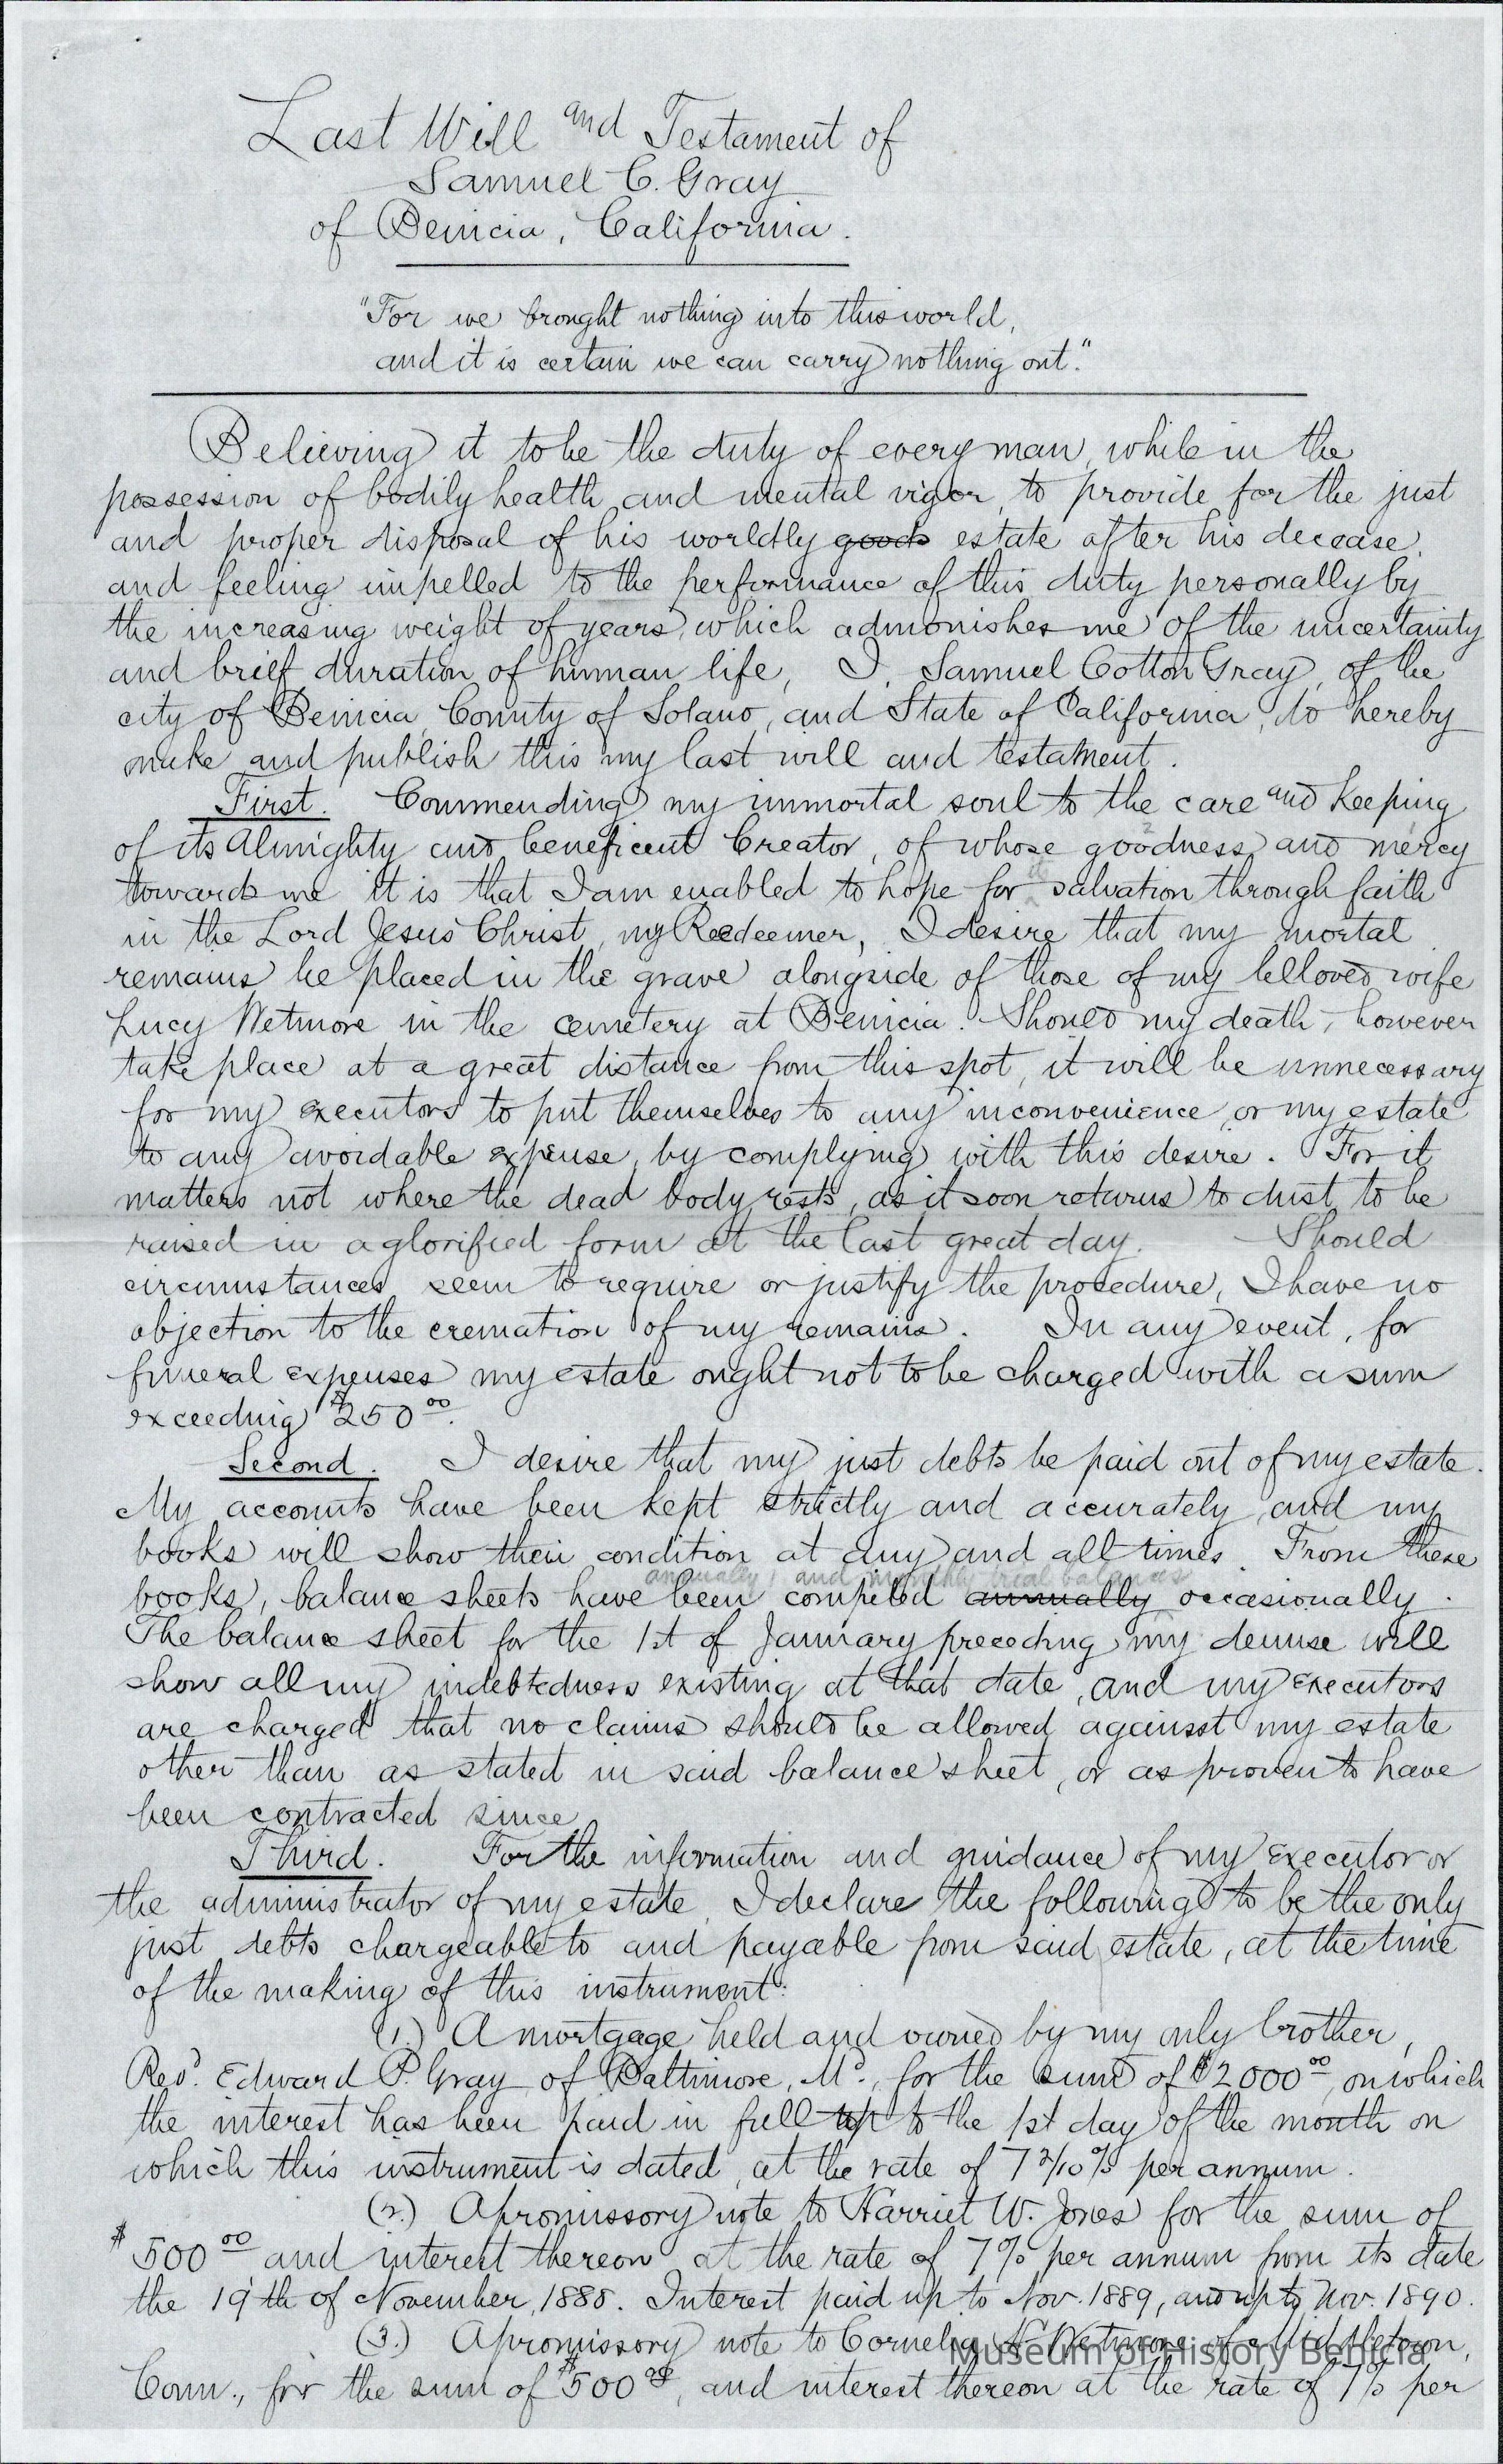 Last Will and Testament of
Samuel C. Gray
of Benicia, California.
"For we brought nothing into this world,
and it is certain we can carry nothing out."
Believing it to be the duty of every man, while in the
possession of bodily health and mental vigor, to provide for the just
and proper disposal of his worldly goods estate after his decease,
and feeling impelled to the performance of this duty personally by
the increasing weight of years, which admonishes me of the uncertainity
and brief duration of human life, I, Samuel Cotton Gray, of the
city of Benicia, County of Solano, and State of California, do hereby
make and publish this my last will and testament.
First. Commending my immortal soul to the care and keeping
of its Almighty and beneficent Creator, of whose goodness and mercy
towards me it is that I am enabled to hope for salvation through faith
in the Lord Jesus Christ, my Reedeemer, I desire that my mortal
remains be placed in the grave alongside of those of my belloved wife
Lucy Wetmore in the cemetery at Benicia. Should my death, however
take place at a great distance from this spot, it will be unnecessary
for my executors to put themselves to any inconvenience, or my estate
to any avoidable expense, by complying with this desire. For it
matters not where the dead body rests, as it soon returns to dust, to be
raised in a glorified form at the last great day. Should
circumstances seem to require or justify the procedure, I have no
objection to the cremation of my remains. In any event, for
funeral expenses my estate ought not to be charged with a sum
exceeding $250 00.
Second. I desire that my just debts be paid out of my estate.
My accounts have been kept strictly and accurately, and my
books will show their condition at any and all times. From these
annually, and monthly trial balances
books, balance sheets have been compiled annually occasionally.
The balance sheet for the 1st of January preceding my demise will
show all my indebtedness existing at that date, and my executors
are charged that no claims should be allowed againsst my estate
other than as stated in said balance sheet, or as proven to have
been contracted since.
Third. For the information and guidance of my executor or
the administrator of my estate, I declare the following to be the only
just debts chargeable to and payable from said estate, at the time
of the making of this instrument:
(1.) A mortgage held and owned by my only brother,
Revd. Edward P. Gray of Baltimore, Md., for the sum of $2000 00, on which
the interest has been paid in full up to the 1st day of the month on
which this instrument is dated, at the rate of 7 2/10 % per annum.
(2.) A promissory note to Harriet W. Jones for the sum of
$500 00 and interest thereon at the rate of 7% per annum from its date
the 19th of November, 1888. Interest paid up to Nov. 1889, and up to Nov. 1890.
(3.) A promissory note to Cornelia Wetmore of Middletown,
Conn., for the sum of $500 00, and interest thereon at the rate of 7% per
Museum of History Benicia